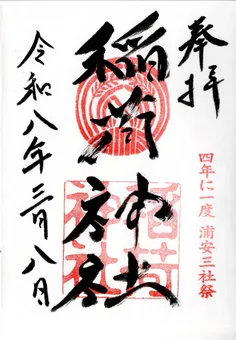 奉拝
四年に一度 浦安三社祭
稲荷神社
稲荷
神社
令和八年三月八日